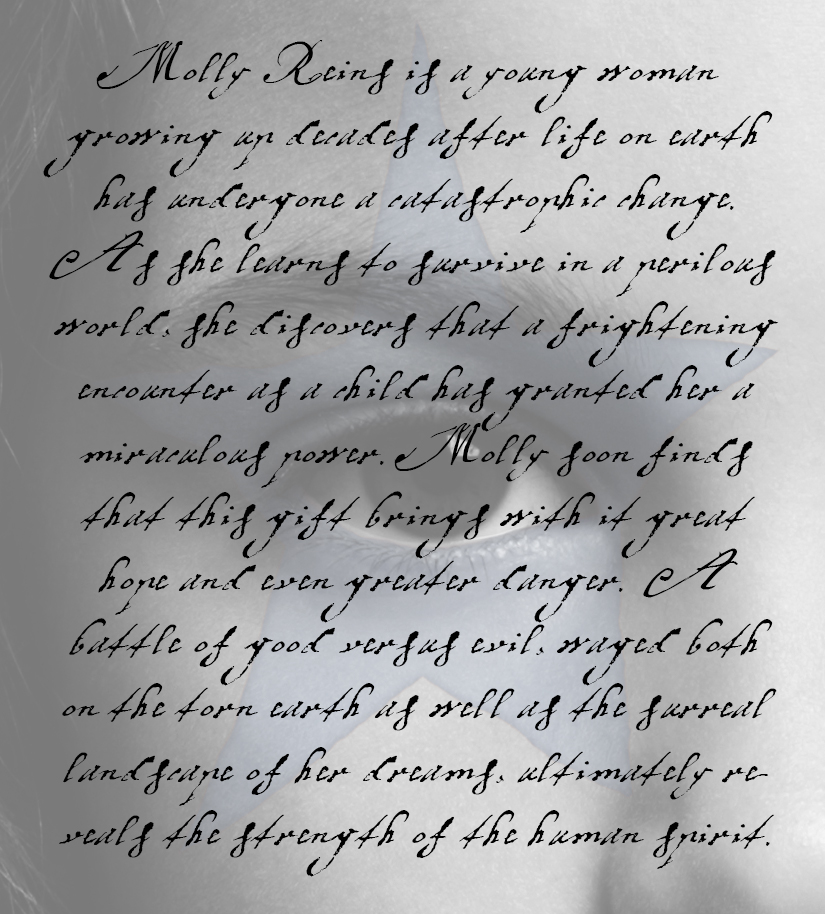 Molly Reins is a young woman
growing up decades after life on earth
has undergone a catastrophic change.
As she learns to survive in a perilous
world, she discovers that a frightening
encounter as a child has granted her a
miraculous power. Molly soon finds
that this gift brings with it great
hope and even greater danger. A
battle of good versus evil, waged both
on the torn earth as well as the surreal
landscape of her dreams, ultimately re-
veals the strength of the human spirit.